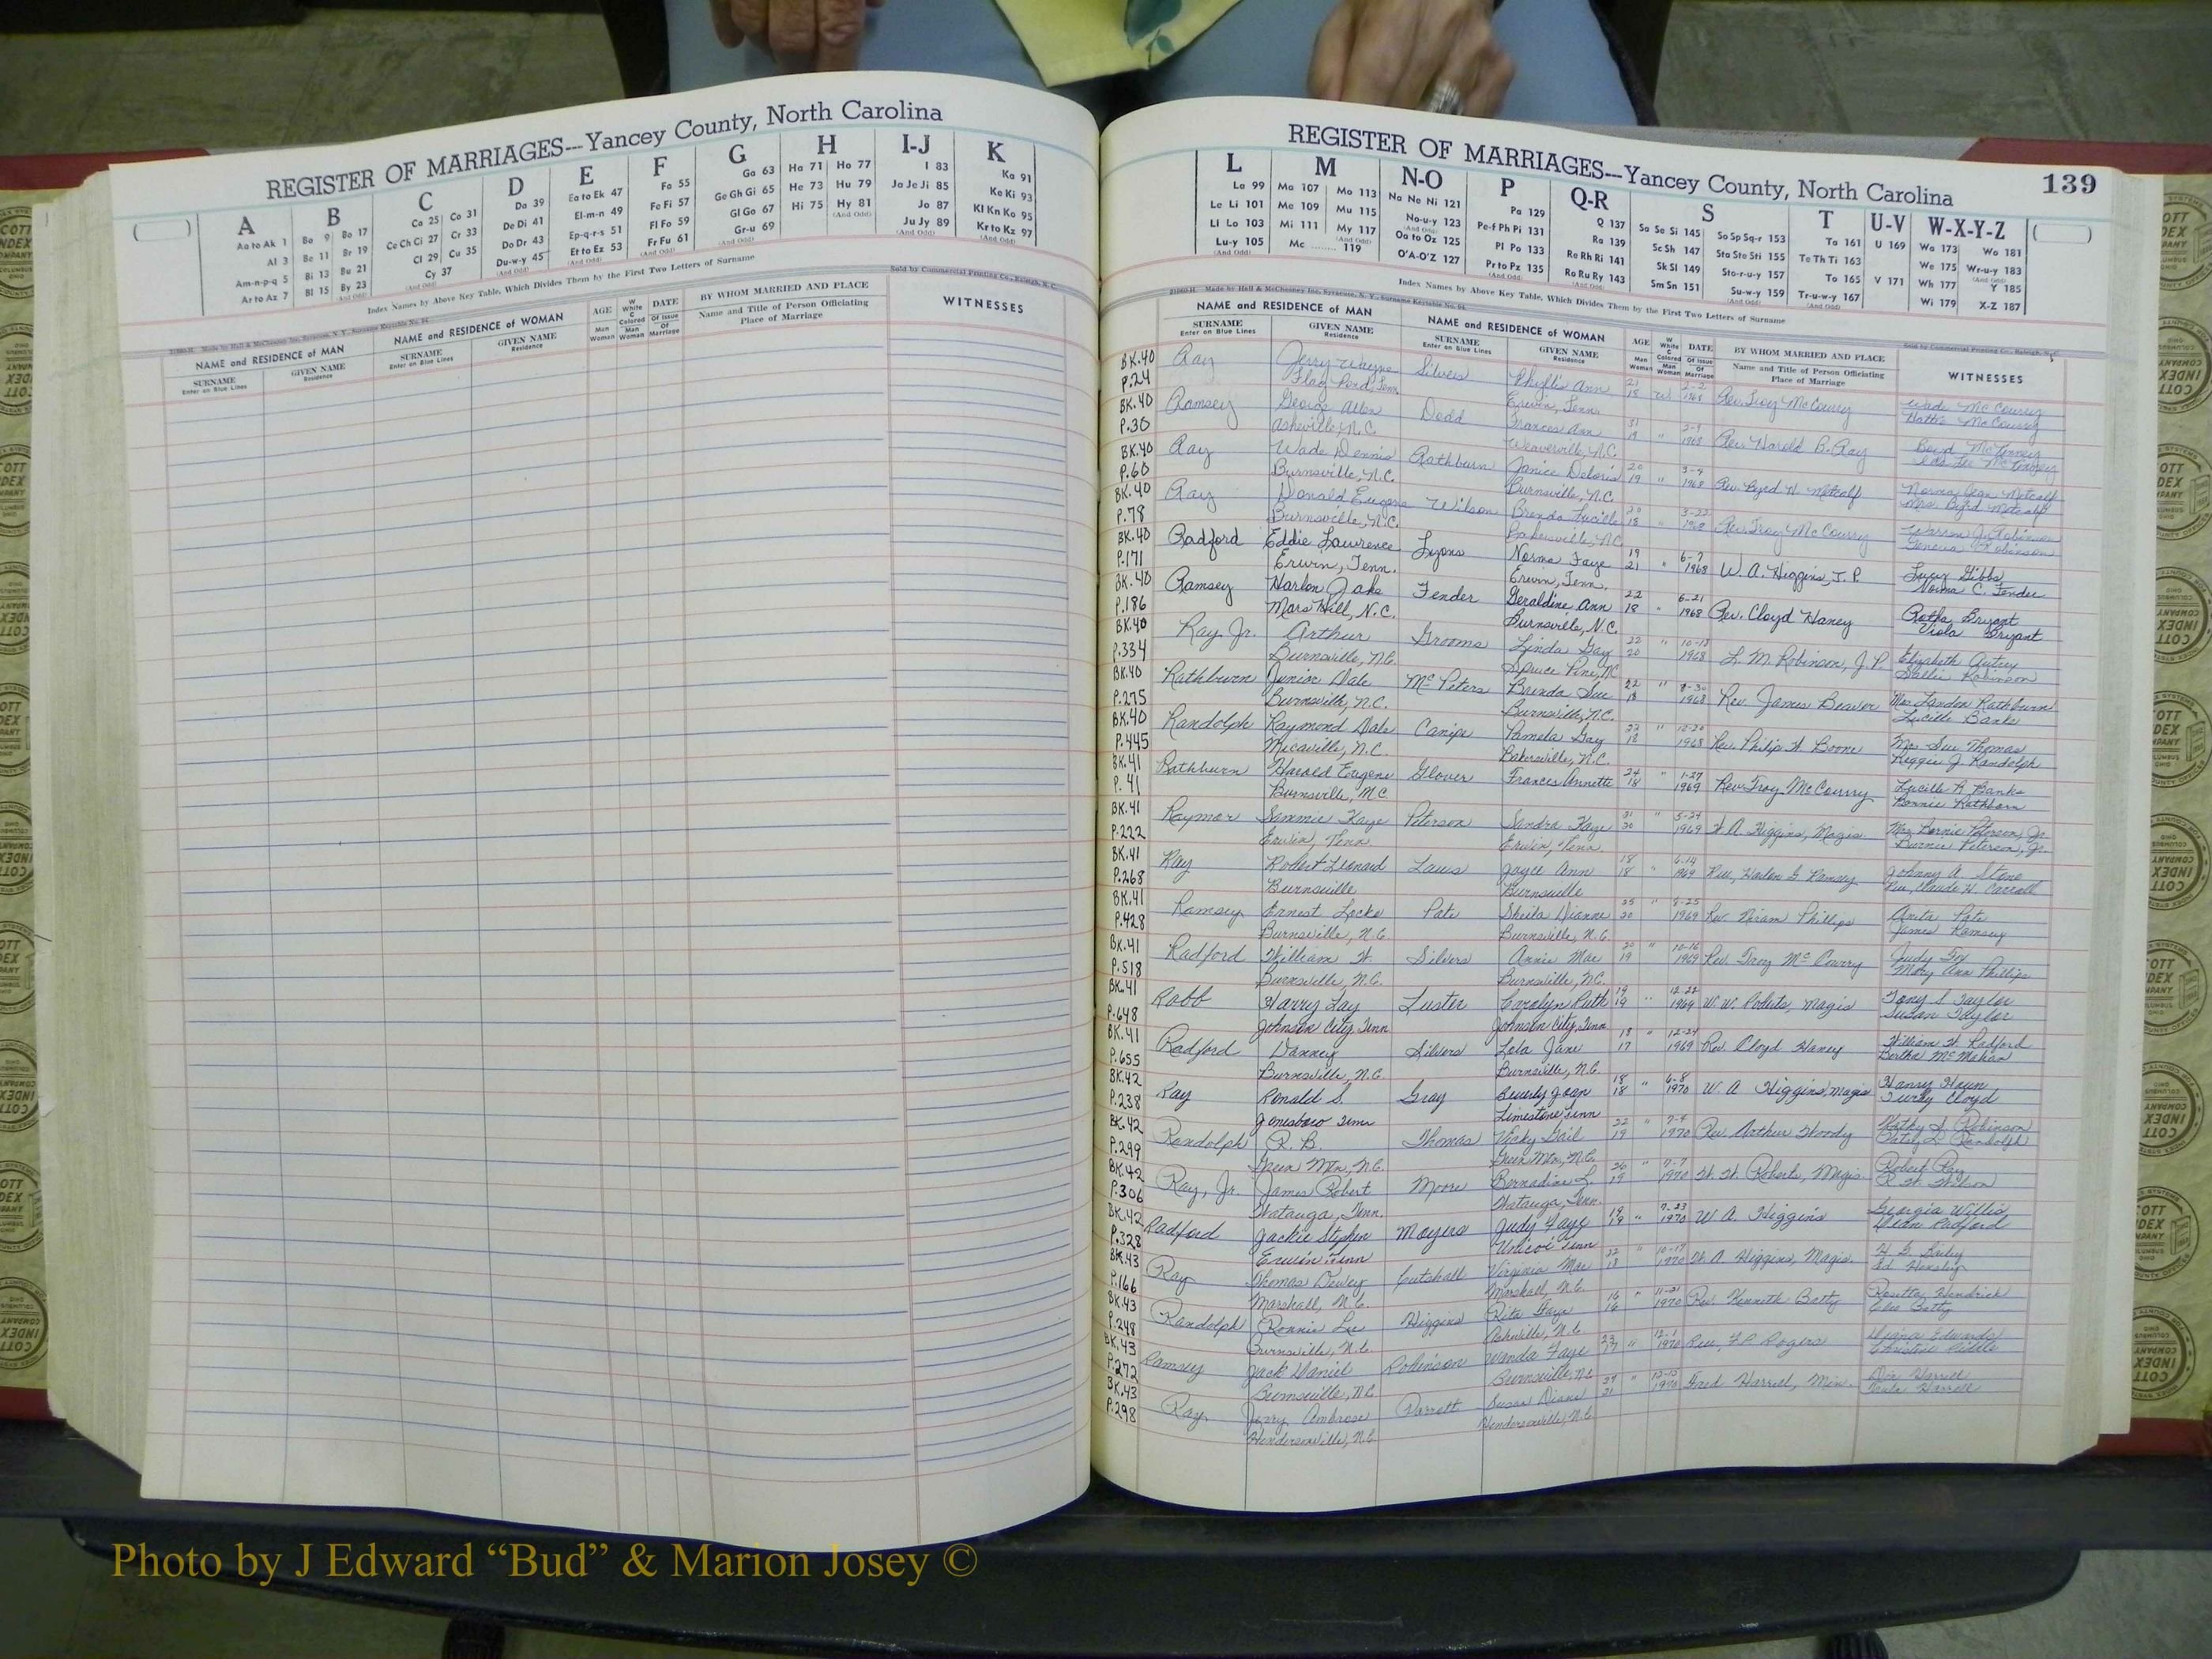 REGISTER OF MARRIAGES---Yancey County, North Carolina
A B C D E F G H I-J K
Aa to Ak 1
Al 3
Am-n-p-q 5
Ar to Az 7
Ba 9 Bo 17
Be 11 Br 19
Bi 13 Bu 21
Bl 15 By 23
Ca 25 Co 31
Ce Ch Ci 27 Cr 33
Cl 29 Cu 35
Cy 37
Da 39
De Di 41
Do Dr 43
Du-w-y 45
Ea to Ek 47
El-m-n 49
Ep-q-r-s 51
Et to Ez 53
Fa 55
Fe Fi 57
Fl Fo 59
Fr Fu 61
Ga 63
Ge Gh Gi 65
Gl Go 67
Gr-u 69
Ha 71 Ho 77
He 73 Hu 79
Hi 75 Hy 81
I 83
Ja Je Ji 85
Jo 87
Ju Jy 89
Ka 91
Ke Ki 93
Kl Kn Ko 95
Kr to Kz 97
Index Names by Above Key Table, Which Divides Them by the First Two Letters of Surname
Sold by Commercial Printing Co., Raleigh, N. C.
NAME and RESIDENCE of MAN
SURNAME
Enter on Blue Lines
GIVEN NAME
Residence
NAME and RESIDENCE of WOMAN
SURNAME
Enter on Blue Lines
GIVEN NAME
Residence
AGE
Man
Woman
W White
C Colored
Man
Woman
DATE
Of Issue
Of Marriage
BY WHOM MARRIED AND PLACE
Name and Title of Person Officiating
Place of Marriage
WITNESSES
REGISTER OF MARRIAGES---Yancey County, North Carolina 139
L M N-O P Q-R S T U-V W-X-Y-Z
La 99
Le Li 101
Ll Lo 103
Lu-y 105
Ma 107 Mo 113
Me 109 Mu 115
Mi 111 My 117
Mc 119
Na Ne Ni 121
No-u-y 123
Oa to Oz 125
O'A-O'Z 127
Pa 129
Pe-f Ph Pi 131
Pl Po 133
Pr to Pz 135
Q 137
Ra 139
Re Rh Ri 141
Ro Ru Ry 143
Sa Se Si 145 So Sp Sq-r 153
Sc Sh 147 Sta Ste Sti 155
Sk Sl 149 Sto-r-u-y 157
Sm Sn 151 Su-w-y 159
Ta 161
Te Th Ti 163
To 165
Tr-u-w-y 167
U 169
V 171
Wa 173 Wo 181
We 175 Wr-u-y 183
Wh 177 Y 185
Wi 179 X-Z 187
Index Names by Above Key Table, Which Divides Them by the First Two Letters of Surname
Sold by Commercial Printing Co., Raleigh, N. C.
NAME and RESIDENCE of MAN
SURNAME
Enter on Blue Lines
GIVEN NAME
Residence
NAME and RESIDENCE of WOMAN
SURNAME
Enter on Blue Lines
GIVEN NAME
Residence
AGE
Man
Woman
W White
C Colored
Man
Woman
DATE
Of Issue
Of Marriage
BY WHOM MARRIED AND PLACE
Name and Title of Person Officiating
Place of Marriage
WITNESSES
BK.40 Ray Jerry Wayne Silvers Phyllis Ann 21 2-2 Rev. Troy McCourry Wade McCourry
P.24 Flag Pond, Tenn. Erwin, Tenn. 18 W 1968 Hattie McCourry
BK.40 Ramsey George Allen Dodd Frances Ann Rev. Harold B. Ray
P.30 Asheville, N.C. Weaverville, N.C. 19 " 1968
BK.40 Ray Wade Dennis Rathburn Janice Deloris 20 3-4 Rev. Byrd H. Metcalf Norma Jean Metcalf
P.60 Burnsville, N.C. Burnsville, N.C. 19 " 1968 Mrs. Byrd Metcalf
BK.40 Ray Donald Eugene Wilson Brenda Lucille 20 3-22 Rev. Troy McCourry Warren J. Robinson
P.78 Burnsville, N.C. Bakersville, N.C. 18 " 1968 Geneva Robinson
BK.40 Radford Eddie Lawrence Lyons Norma Faye 19 6-7 W. A. Higgins, J. P. Lucy Gibbs
P.171 Erwin, Tenn. Erwin, Tenn. 21 " 1968 Norma C. Fender
BK.40 Ramsey Harlon Jake Fender Geraldine Ann 22 6-21 Rev. Cloyd Haney Bryant
P.186 Mars Hill, N.C. Burnsville, N.C. 18 " 1968 Viola Bryant
BK.40 Ray Jr. Arthur Grooms Linda Gay 22 " L. M. Robinson, J. P. Elizabeth Autrey
P.334 Burnsville, N.C. Spruce Pine, N.C. 20 1968 Sallie Robinson
BK.40 Rathburn Junior Dale McPeters Brenda Sue 22 " 8-30 Rev. James Deaver Mrs. Landon Rathburn
P.275 Burnsville, N.C. Burnsville, N.C. 18 1968 Lucille Banks
BK.40 Randolph Raymond Dale Canipe Pamela Gay 22 " Rev. Philip A. Boone Mrs. Sue Thomas
P.445 Micaville, N.C. Bakersville, N.C. 18 1968 Reggie J. Randolph
BK.41 Rathburn Harold Eugene Glover Frances Annette 24 " 1-27 Rev. Troy McCourry Lucille R. Banks
P.41 Burnsville, N.C. 18 1969 Bonnie Rathburn
BK.41 Raymer Sammie Kaye Peterson Sandra Kaye 21 " 5-24 W. A. Higgins, Magis. Mrs. Bernie Peterson, Jr.
P.222 Erwin, Tenn. Erwin, Tenn. 20 1969 Burnie Peterson, Jr.
BK.41 Ray Robert Leonard Laws Joyce Ann 18 6-14 Rev. Harlon G. Ramsey Johnny A. Stone
P.268 Burnsville Burnsville 18 " 1969 Rev. Claude H. Carroll
BK.41 Ramsey Ernest Locke Pate Sheila Dianne 25 " 8-25 Rev. Hiram Phillips Anita Pate
P.428 Burnsville, N.C. Burnsville, N.C. 20 1969 James Ramsey
BK.41 Radford William H. Silvers Annie Mae 20 " 10-16 Rev. Troy McCourry Judy Fox
P.518 Burnsville, N.C. Burnsville, N.C. 19 1969 Mary Ann Phillips
BK.41 Robb Harry Lay Luster Carolyn Ruth 19 12-22 W. W. Roberts, Magis Tony S. Taylor
P.648 Johnson City, Tenn Johnson City, Tenn 19 " 1969 Susan Taylor
BK.41 Radford Danney Silvers Lola Jane 18 " 12-24 Rev. Cloyd Haney William H. Radford
P.655 Burnsville, N.C. Burnsville, N.C. 17 1969 Bertha McMahan
BK.42 Ray Ronald S. Gray Beverly Joan 18 6-8 W. A. Higgins, Magis Harry Haun
P.238 Jonesboro Tenn Limestone Tenn 18 " 1970 Terry Cloyd
BK.42 Randolph R. B. Thomas Vicky Gail 22 " 7-4 Rev. Arthur Woody Kathy S. Robinson
P.299 Green Mtn, N.C. Green Mtn, N.C. 19 1970 Randolph
BK.42 Ray, Jr. James Robert Moore Bernadine L. 26 " 7-7 W. W. Roberts, Magis. Robert Ray
P.306 Watauga, Tenn. Watauga, Tenn. 19 1970 R. W. Wilson
BK.42 Radford Jackie Stephen Moyers Judy Faye 19 7-23 W. A. Higgins Georgia Willis
P.328 Erwin Tenn Unicoi Tenn 19 " 1970 Dean Radford
BK.43 Ray Thomas Dewey Cutshall Virginia Mae 22 " 10-17 W. A. Higgins, Magis. H. G. Bailey
P.166 Marshall, N.C. Marshall, N.C. 18 1970 Ed Hensley
BK.43 Randolph Ronnie Lee Higgins Rita Faye 16 " 11-21 Rev. Kenneth Batty Rosetta Hendrick
P.248 Burnsville, N.C. Asheville, N.C. 16 1970 Batty
BK.43 Ramsey Jack Daniel Robinson Wanda Faye 23 12-1 Rev. F. P. Rogers Edwards
P.272 Burnsville, N.C. Burnsville, N.C. 17 " 1970 Christine Riddle
BK.43 Ray Jerry Ambrose Parrott Susan Diane 29 " 12-12 Fred Harrell, Min. Harrell
P.298 Hendersonville, N.C. Hendersonville, N.C. 21 1970 Harrell
Photo by J Edward “Bud” & Marion Josey ©